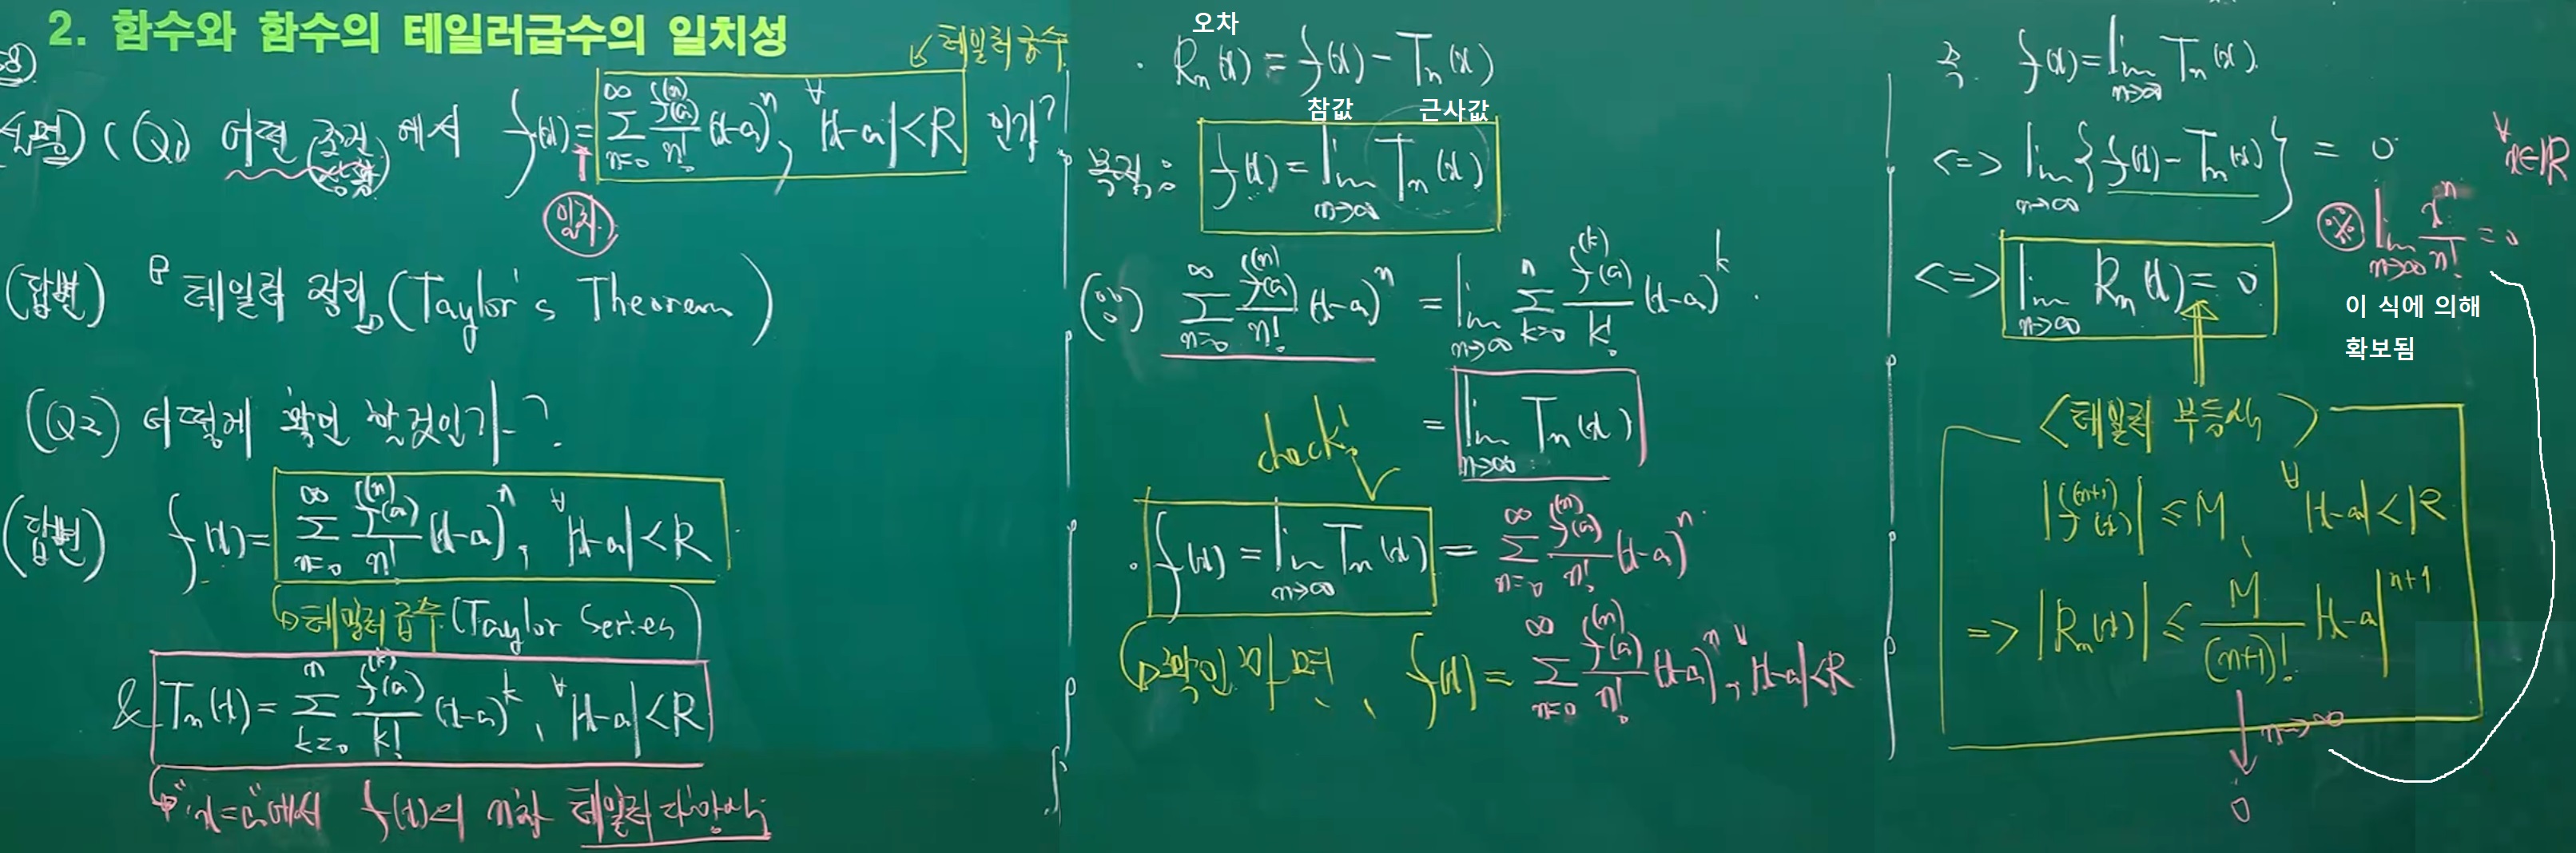 2. 함수와 함수의 테일러급수의 일치성
테일러급수
설명) (Q1) 어떤 조건에서 f(x) = ∑_{n=0}^{∞} f^{(n)}(a)/n! (x-a)^n, ∀|x-a|<R 인가?
일치
(답변) 『테일러 정리』(Taylor's Theorem)
(Q2) 어떻게 확인 할 것인가?
(답변) f(x) = ∑_{n=0}^{∞} f^{(n)}(a)/n! (x-a)^n, ∀|x-a|<R
테일러급수(Taylor Series)
& T_n(x) = ∑_{k=0}^{n} f^{(k)}(a)/k! (x-a)^k, ∀|x-a|<R
"x=a"에서 f(x)의 n차 테일러 다항식
오차
· R_n(x) = f(x) - T_n(x)
참값 근사값
목적: f(x) = lim_{n→∞} T_n(x)
(∵) ∑_{n=0}^{∞} f^{(n)}(a)/n! (x-a)^n = lim_{n→∞} ∑_{k=0}^{n} f^{(k)}(a)/k! (x-a)^k.
= lim_{n→∞} T_n(x)
check!
· f(x) = lim_{n→∞} T_n(x) = ∑_{n=0}^{∞} f^{(n)}(a)/n! (x-a)^n.
확인되면, f(x) = ∑_{n=0}^{∞} f^{(n)}(a)/n! (x-a)^n, ∀|x-a|<R
즉. f(x) = lim_{n→∞} T_n(x)
<=> lim_{n→∞} {f(x) - T_n(x)} = 0
∀x∈R
※ lim_{n→∞} x^n/n! = 0
<=> lim_{n→∞} R_n(x) = 0
이 식에 의해
확보됨
<테일러 부등식>
|f^{(n+1)}(x)| ≤ M, ∀|x-a|<R
=> |R_n(x)| ≤ M/(n+1)! |x-a|^{n+1}
n→∞
0